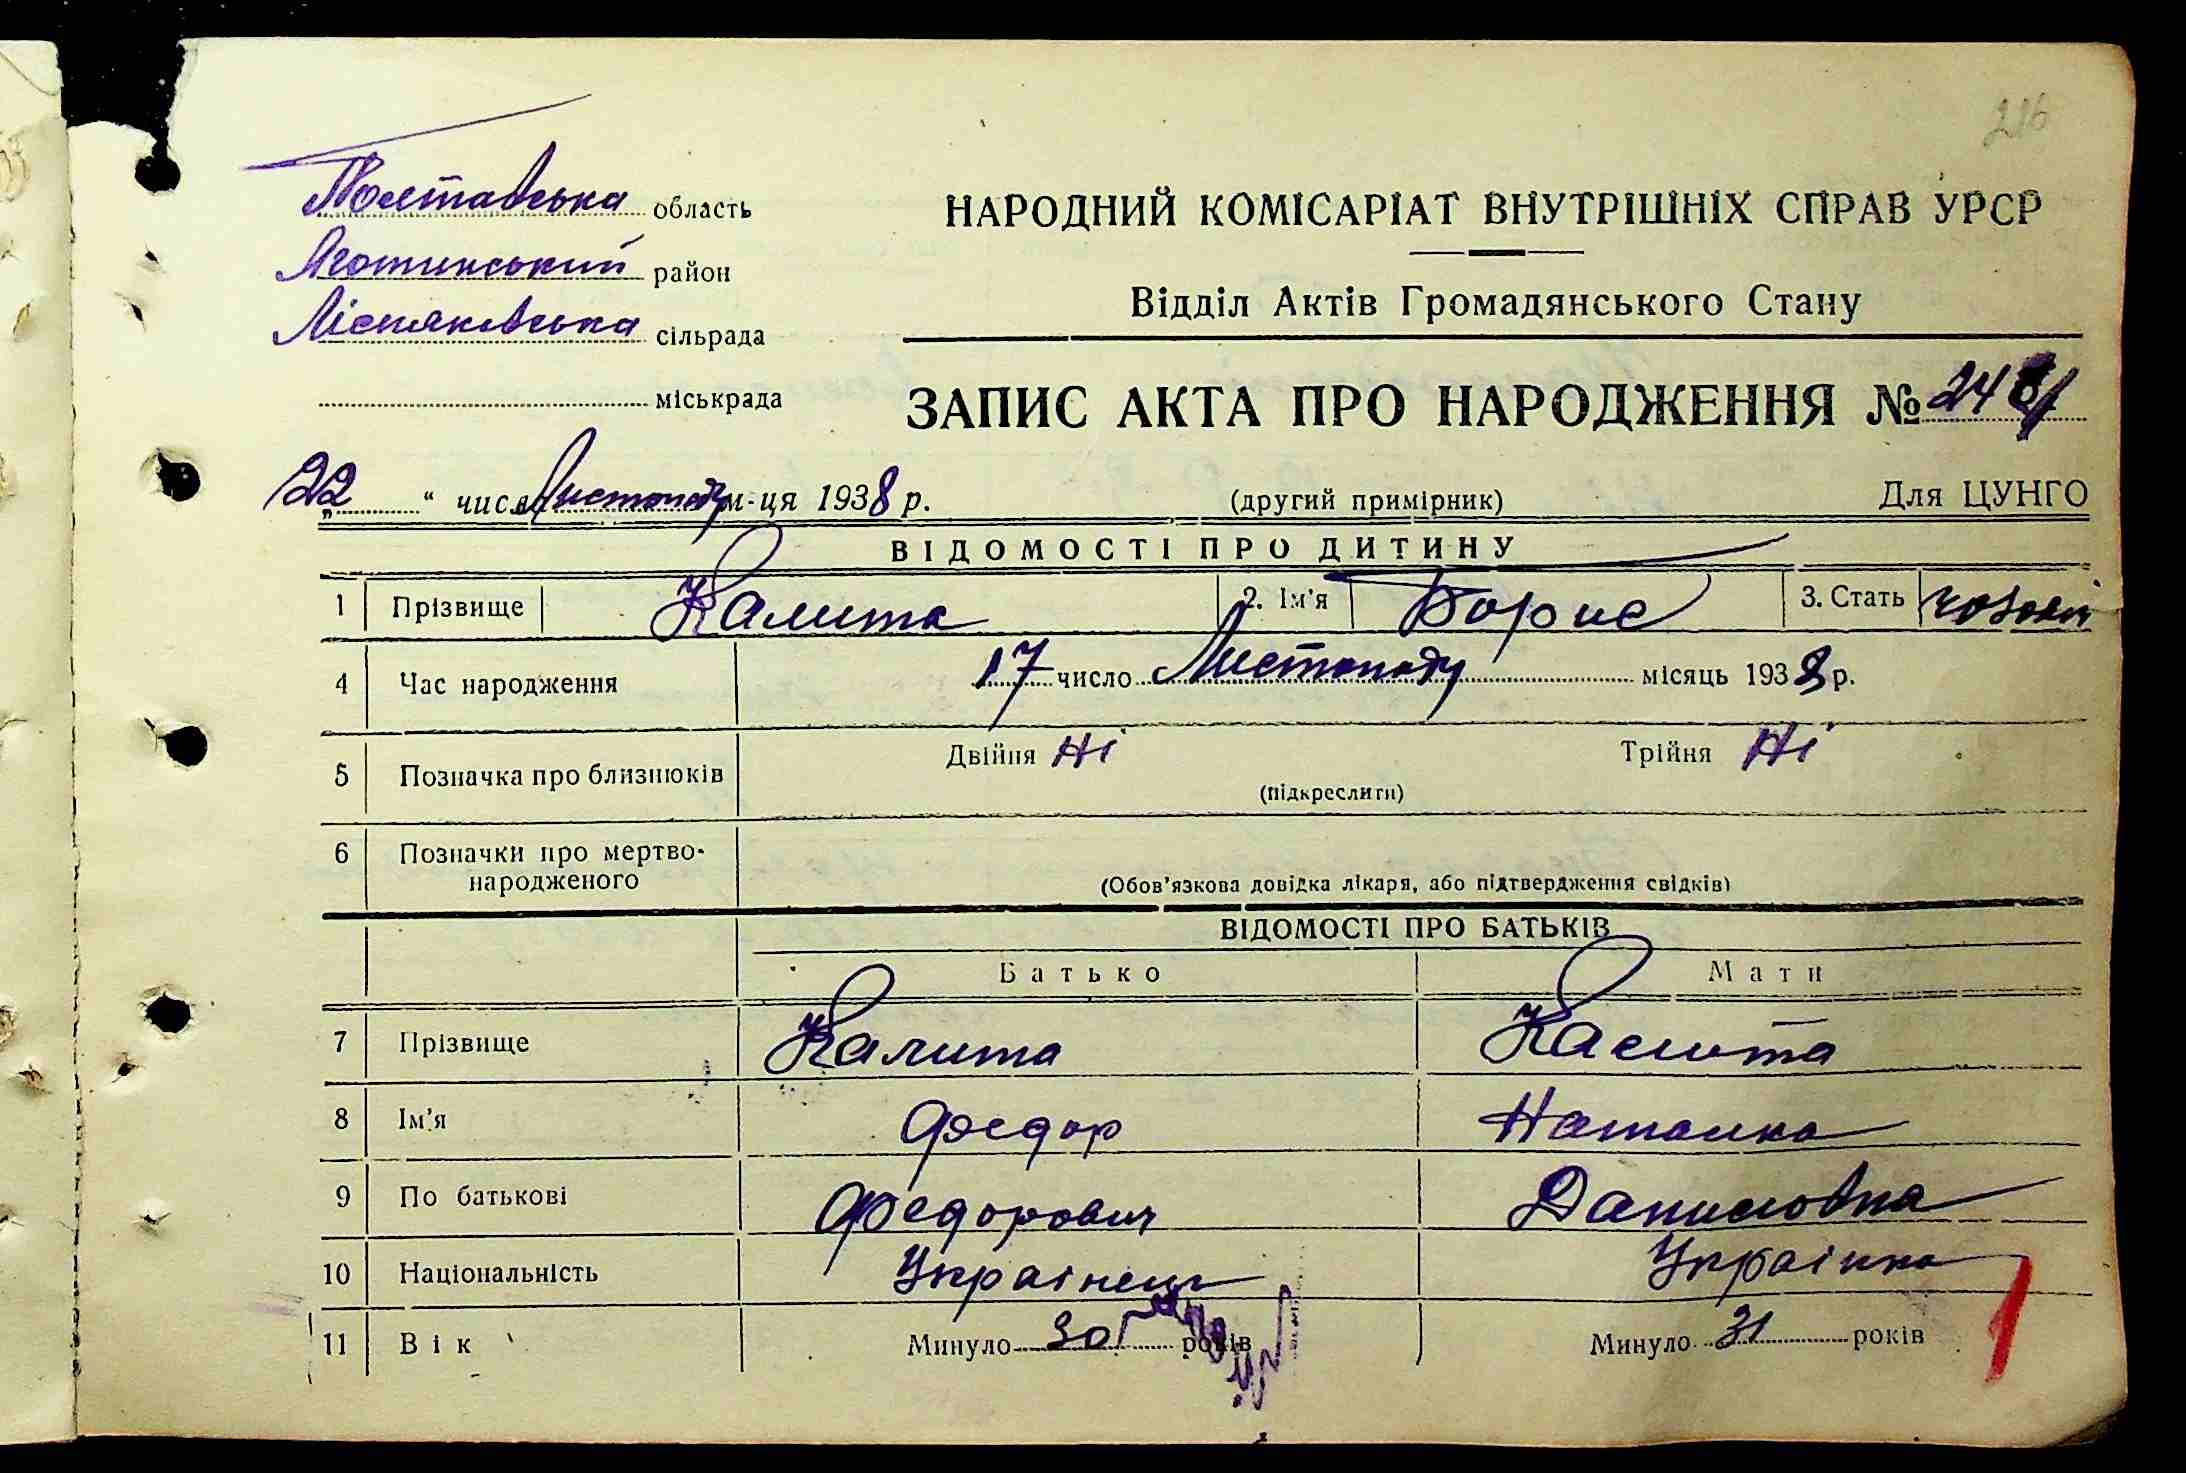 216
Полтавська область
Яготинський район
Лісняківська сільрада
міськрада
НАРОДНИЙ КОМІСАРІАТ ВНУТРІШНІХ СПРАВ УРСР
Відділ Актів Громадянського Стану
ЗАПИС АКТА ПРО НАРОДЖЕННЯ №
„22“ числа Листопаду м-ця 1938 р.
(другий примірник)
Для ЦУНГО
ВІДОМОСТІ ПРО ДИТИНУ
1 Прізвище Калита 2. Ім'я Борис 3. Стать чоловіч
4 Час народження 17 число Листопаду місяць 1938 р.
5 Позначка про близнюків Двійня Ні Трійня Ні
(підкреслити)
6 Позначки про мертво-
народженого
(Обов'язкова довідка лікаря, або підтвердження свідків)
ВІДОМОСТІ ПРО БАТЬКІВ
Батько Мати
7 Прізвище Калита Калита
8 Ім'я Федор Наталка
9 По батькові Федорович Даниловна
10 Національність Украінець Украінка
11 Вік Минуло 30 років Минуло 31 років
1